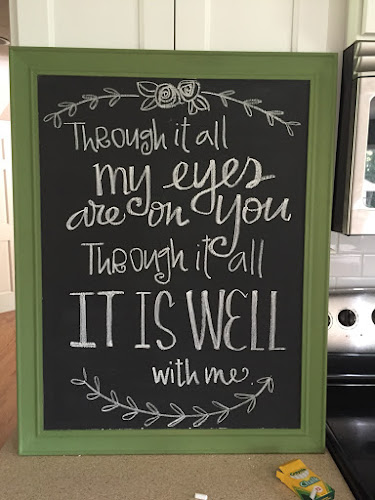 Through it all
my eyes
are on you
Through it all
IT IS WELL
with me.